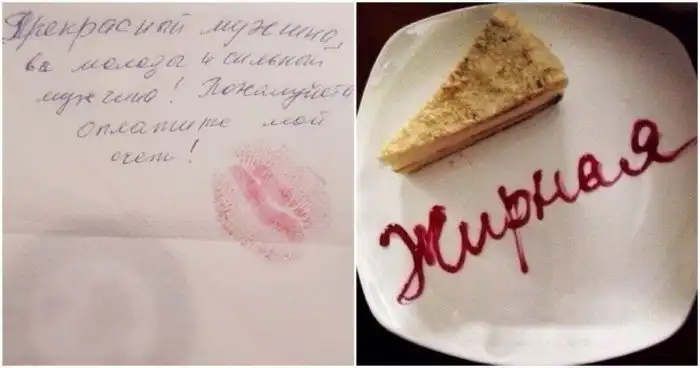 Прекрасный мужчина,
вы молодый и сильный
мужчина! Пожалуйста
оплатите мой
счет!
Жирная